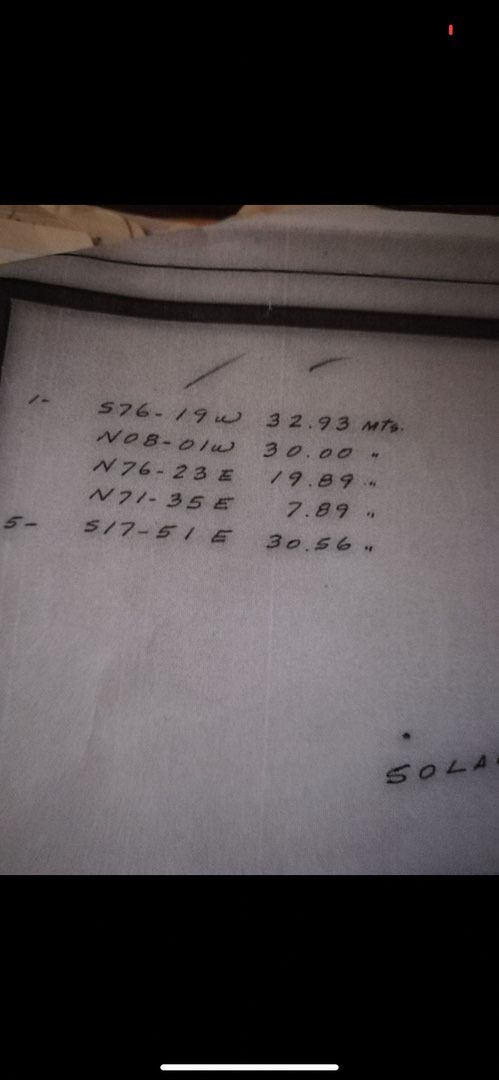 1- S76-19W 32.93 Mts.
N08-01W 30.00 "
N76-23E 19.89 "
N71-35E 7.89 "
5- S17-51E 30.56 "